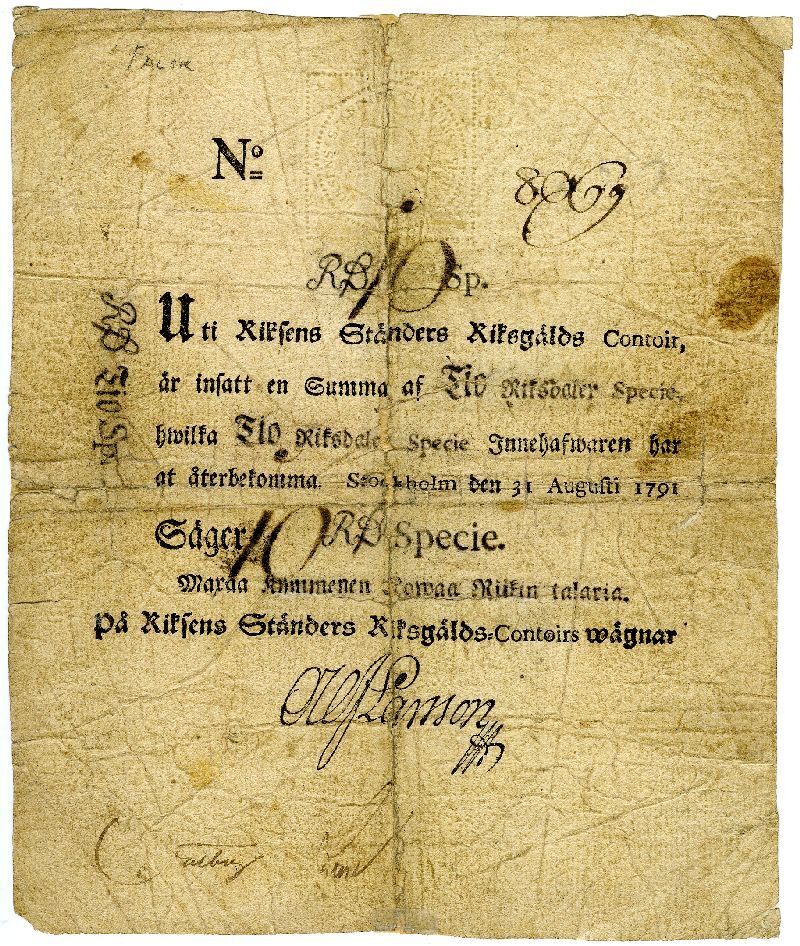 FALSK
No
RD 10 Sp.
RD Tio Sp.
Uti Riksens Ständers Riksgälds Contoir,
är insatt en Summa af Tio Riksdaler Specie,
hwilka Tio Riksdaler Specie Innehafwaren har
at återbekomma. Stockholm den 31 Augusti 1791
Säger 10 RD Specie.
Maxaa Kymmenen Kowaa Riikin talaria.
På Riksens Ständers Riksgälds-Contoirs wägnar